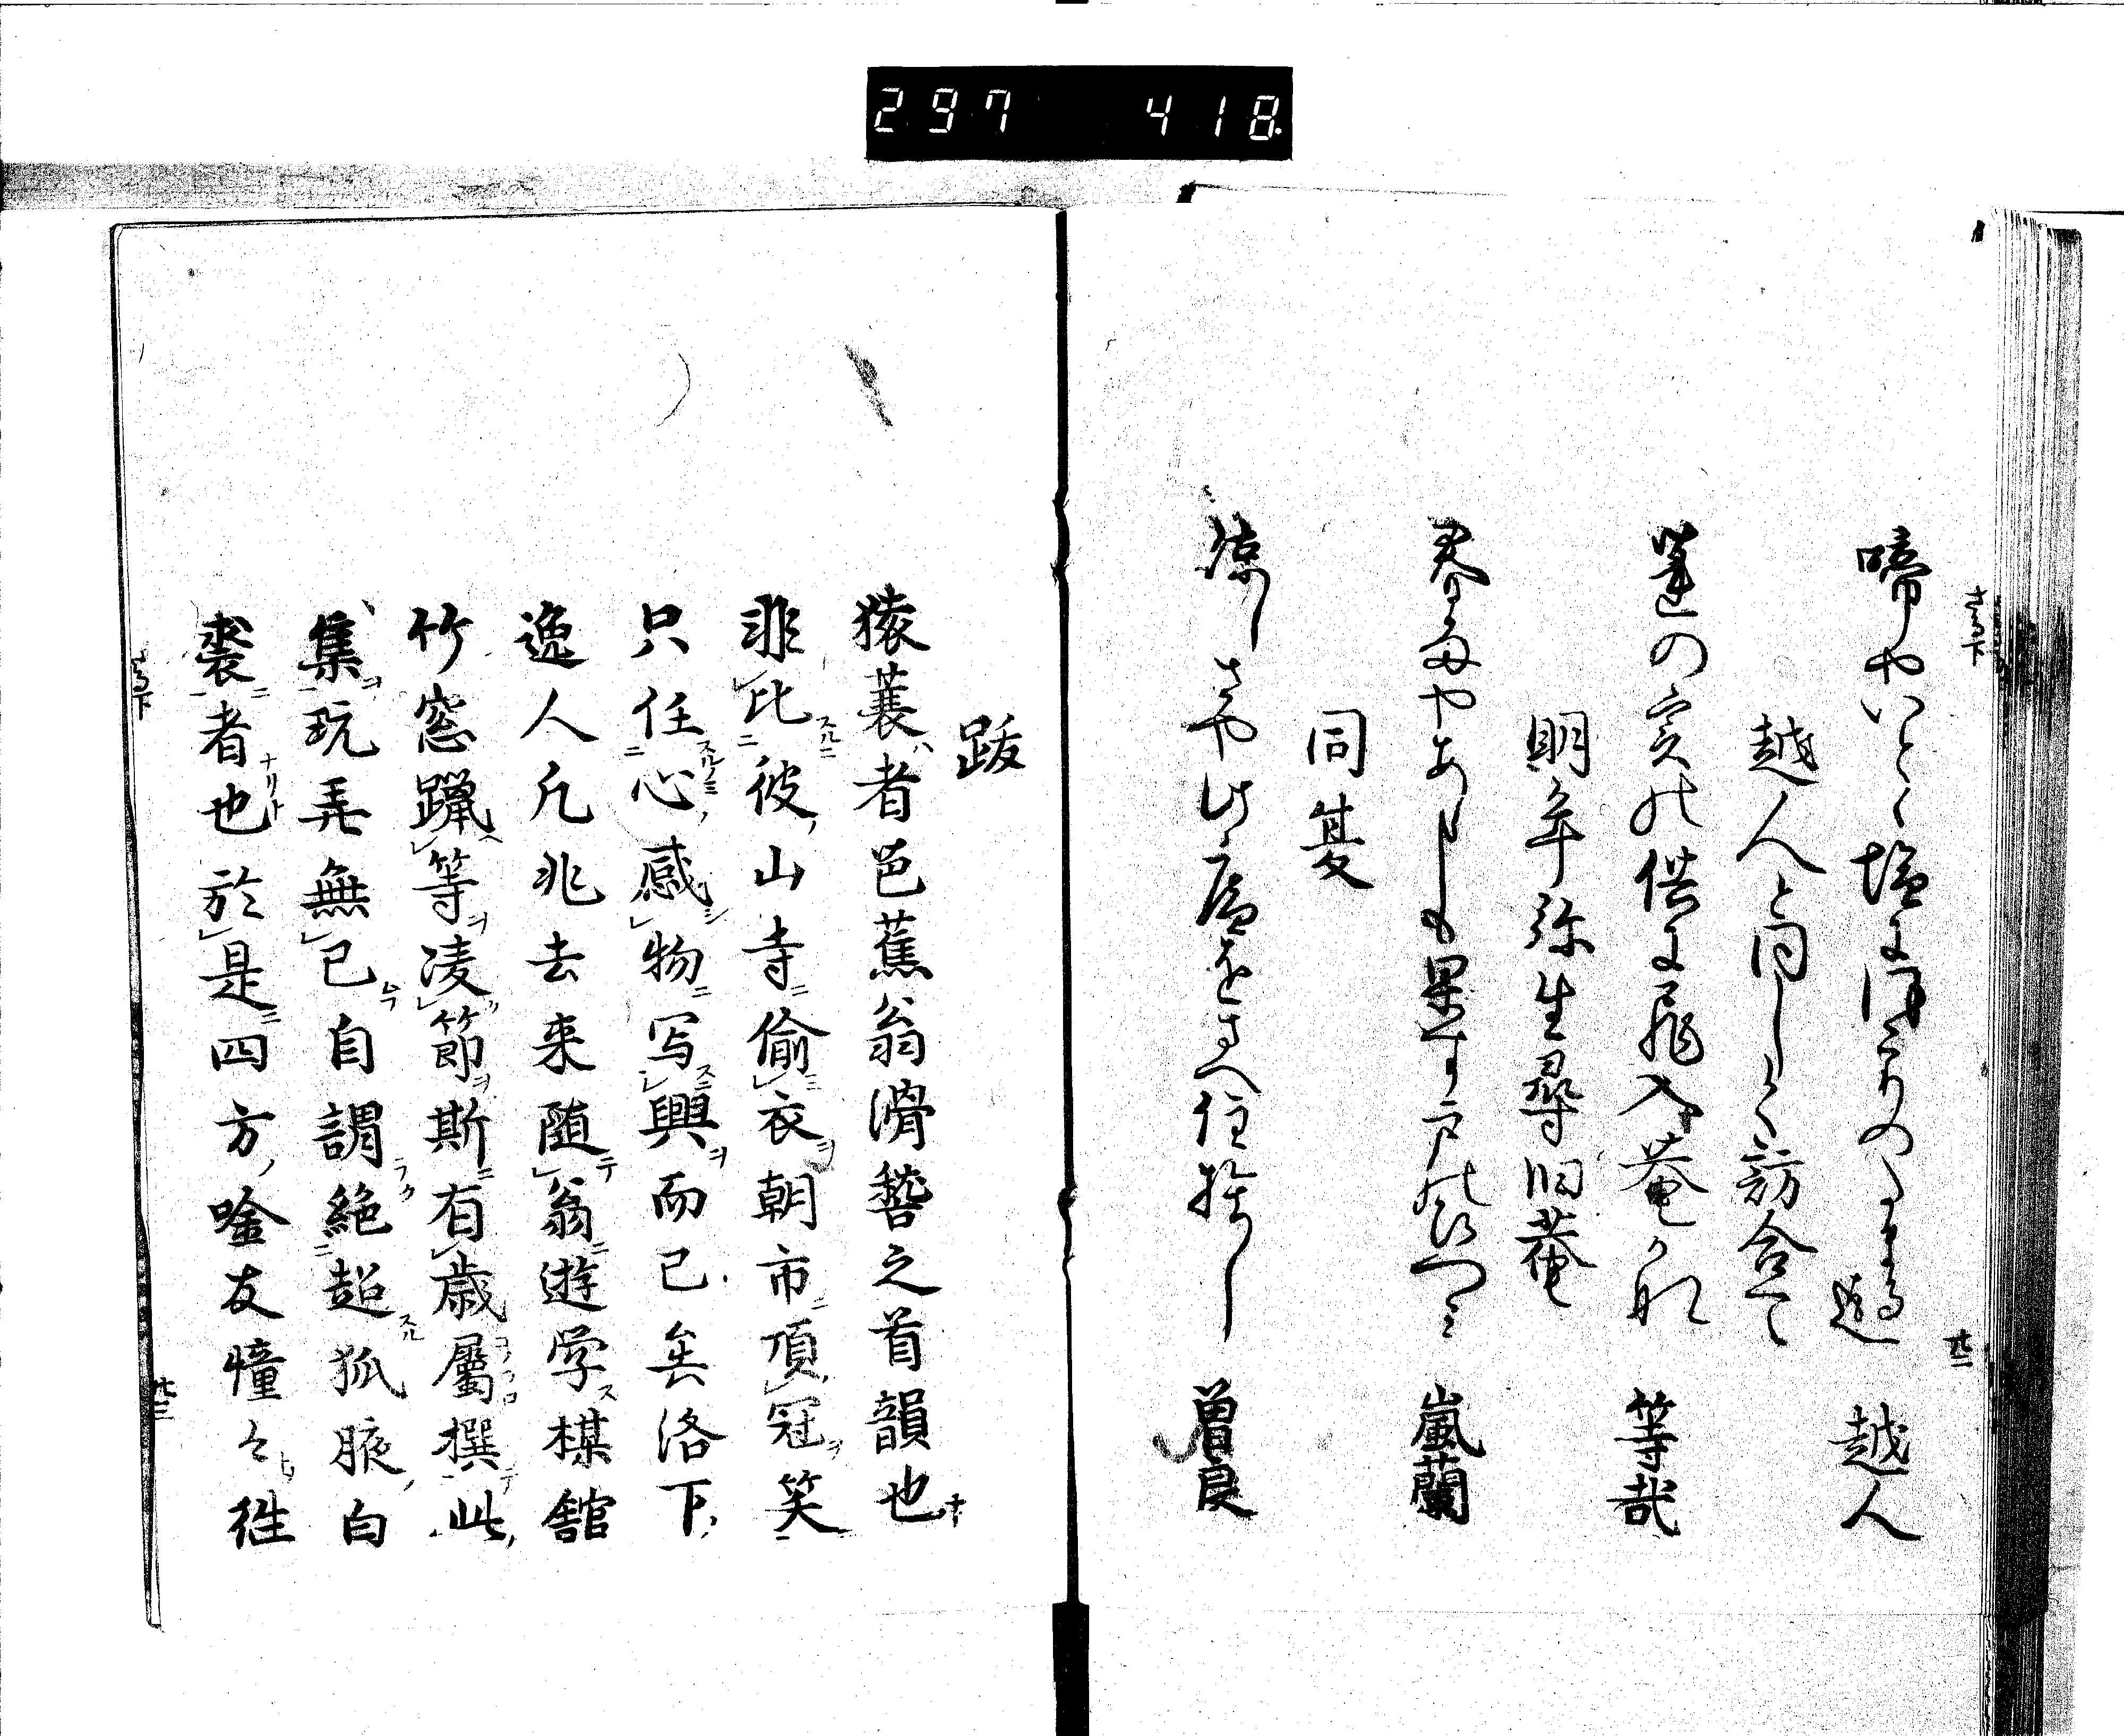 さる下
啼やいとゝ塩にほこりのたまる迄 越人
越人と同しく訪合て
蓮の実の供に飛入菴かな 等哉
明年弥生尋旧菴
春雨やあらしも果す戸のひつミ 嵐蘭
同夏
涼しさや此庵をさへ住捨し 曽良
廿二
跋
猿蓑者芭蕉翁滑稽之首韻也
非比彼山寺偸衣朝市頂冠笑
只任心感物写興而已矣洛下
逸人凡兆去来随翁遊学楳舘
竹窓躐等凌節斯有歳属撰此
集玩弄無已自謂絶超狐腋白
裘者也於是四方唫友憧々往
さる下
廿三
297 418